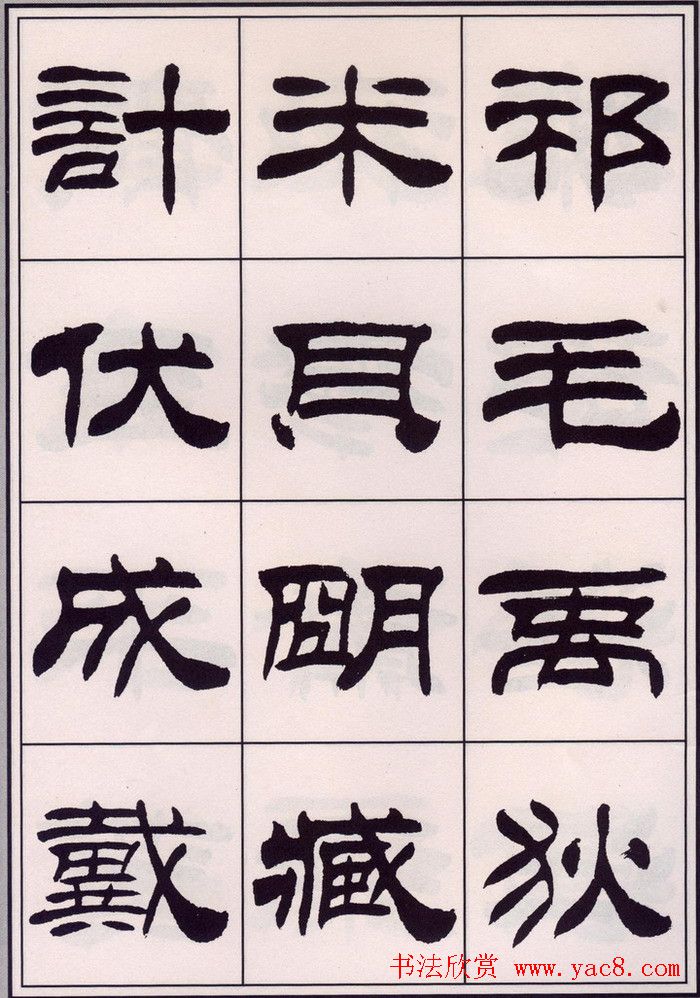 祁毛禹狄
米貝朙臧
計伏成戴
书法欣赏 www.yac8.com